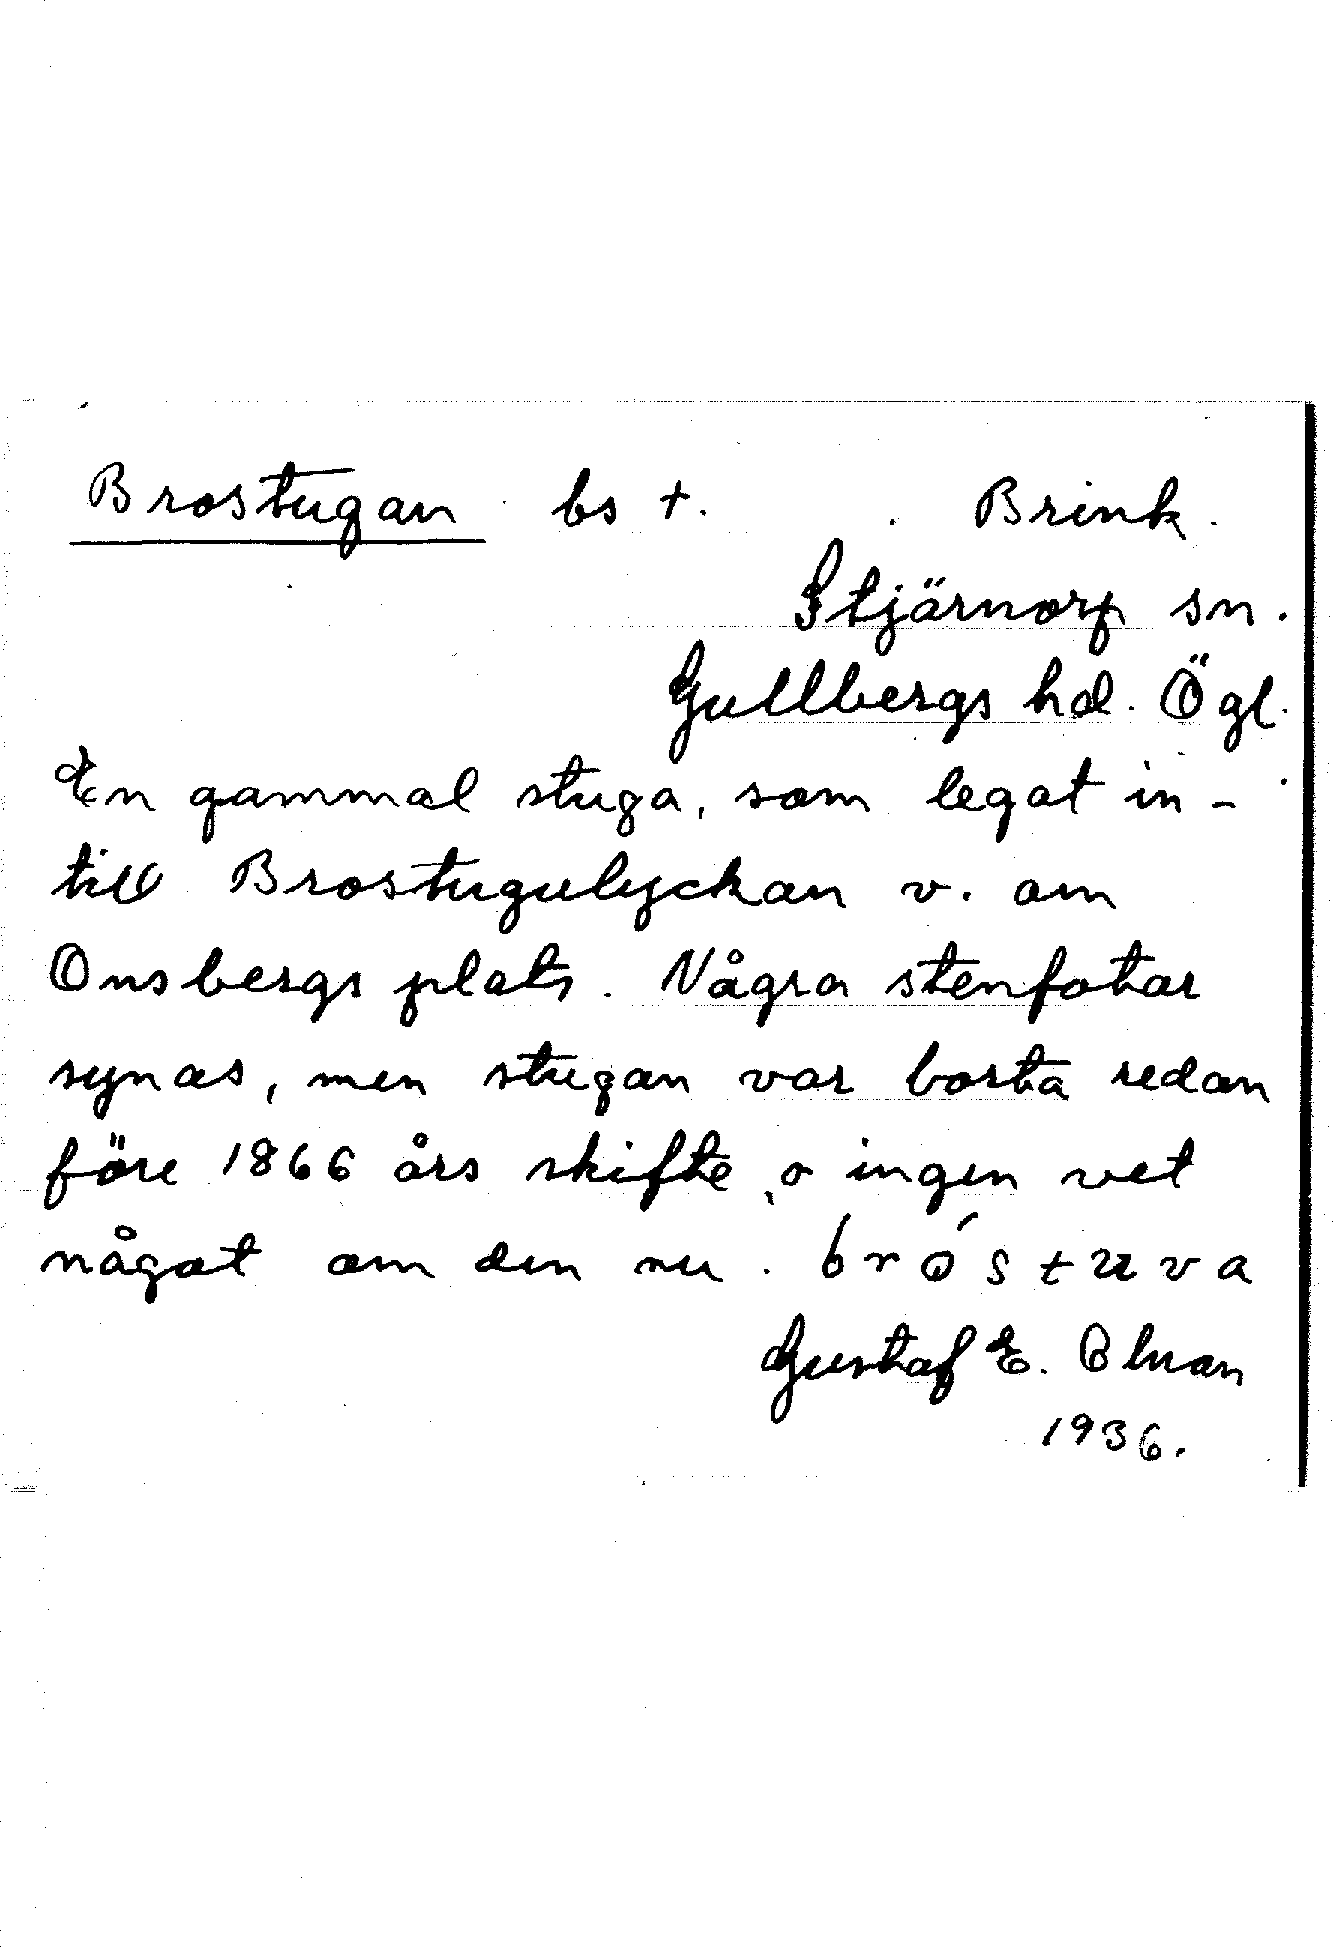 Brostugan bs †. Brink.
Stjärnorp sn.
Gullbergs hd. Ögl.
En gammal stuga, som legat in-
till Brostugulyckan v. om
Onsbergs plats. Några stenfotar
synas, men stugan var borta redan
före 1866 års skifte, o ingen vet
något om den nu. bróstuva
Gustaf E.
1936.